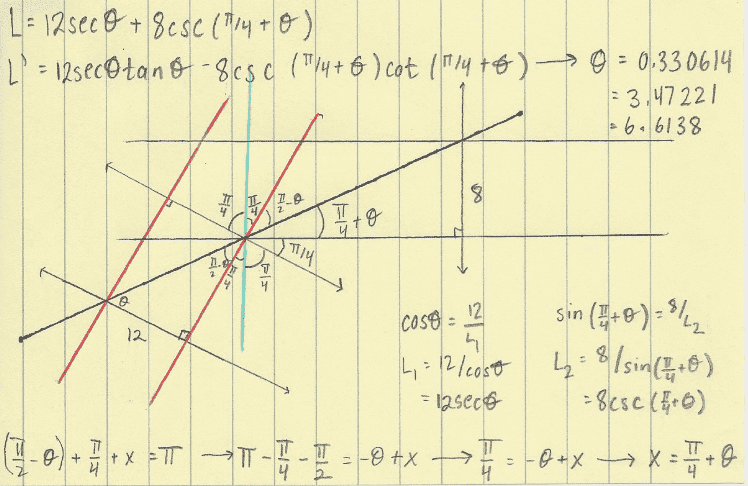 L = 12secθ + 8csc(π/4 + θ)
L' = 12secθtanθ - 8csc (π/4 + θ)cot(π/4 + θ) → θ = 0.330614
= 3.47221
= 6.6138
π/4 π/4 π/2-θ
π/4 + θ
8
π/2-θ π/4 π/4
π/4
θ
12
cosθ = 12/L₁
L₁ = 12/cosθ
= 12secθ
sin(π/4+θ) = 8/L₂
L₂ = 8/sin(π/4+θ)
= 8csc(π/4+θ)
(π/2 - θ) + π/4 + x = π → π - π/4 - π/2 = -θ + x → π/4 = -θ + x → x = π/4 + θ